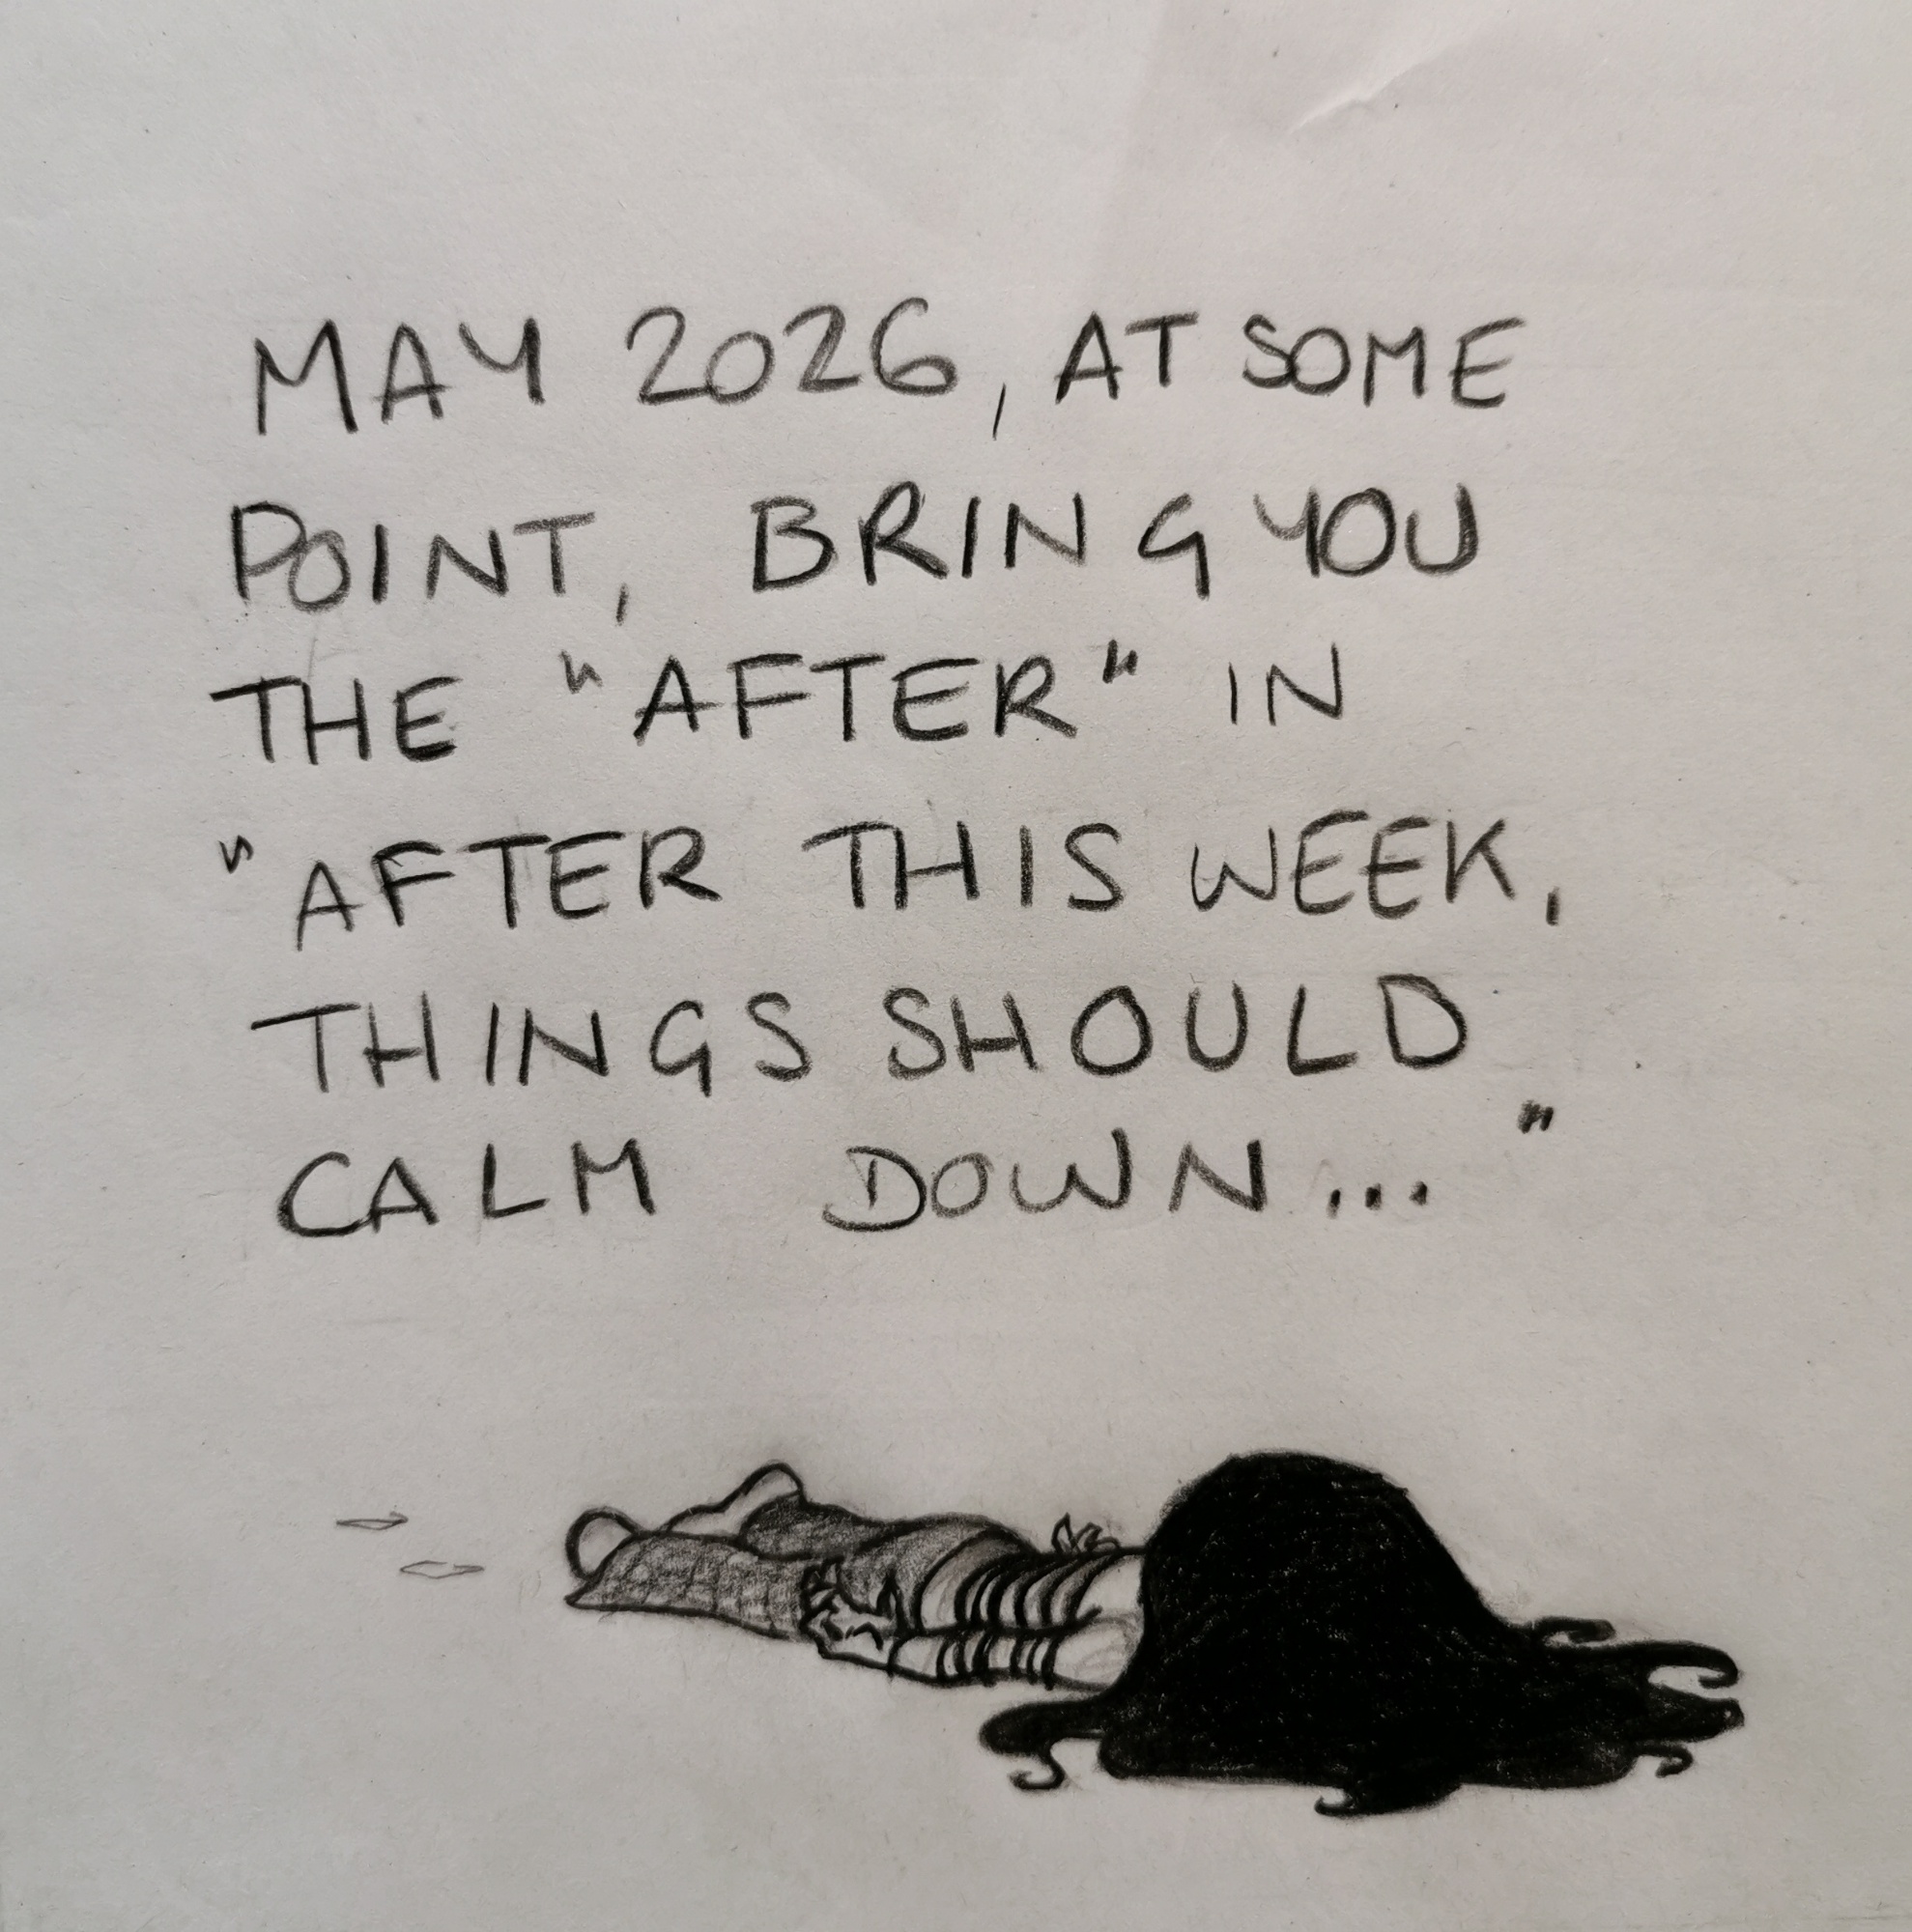 MAY 2026, AT SOME
POINT, BRING YOU
THE "AFTER" IN
"AFTER THIS WEEK,
THINGS SHOULD
CALM DOWN..."